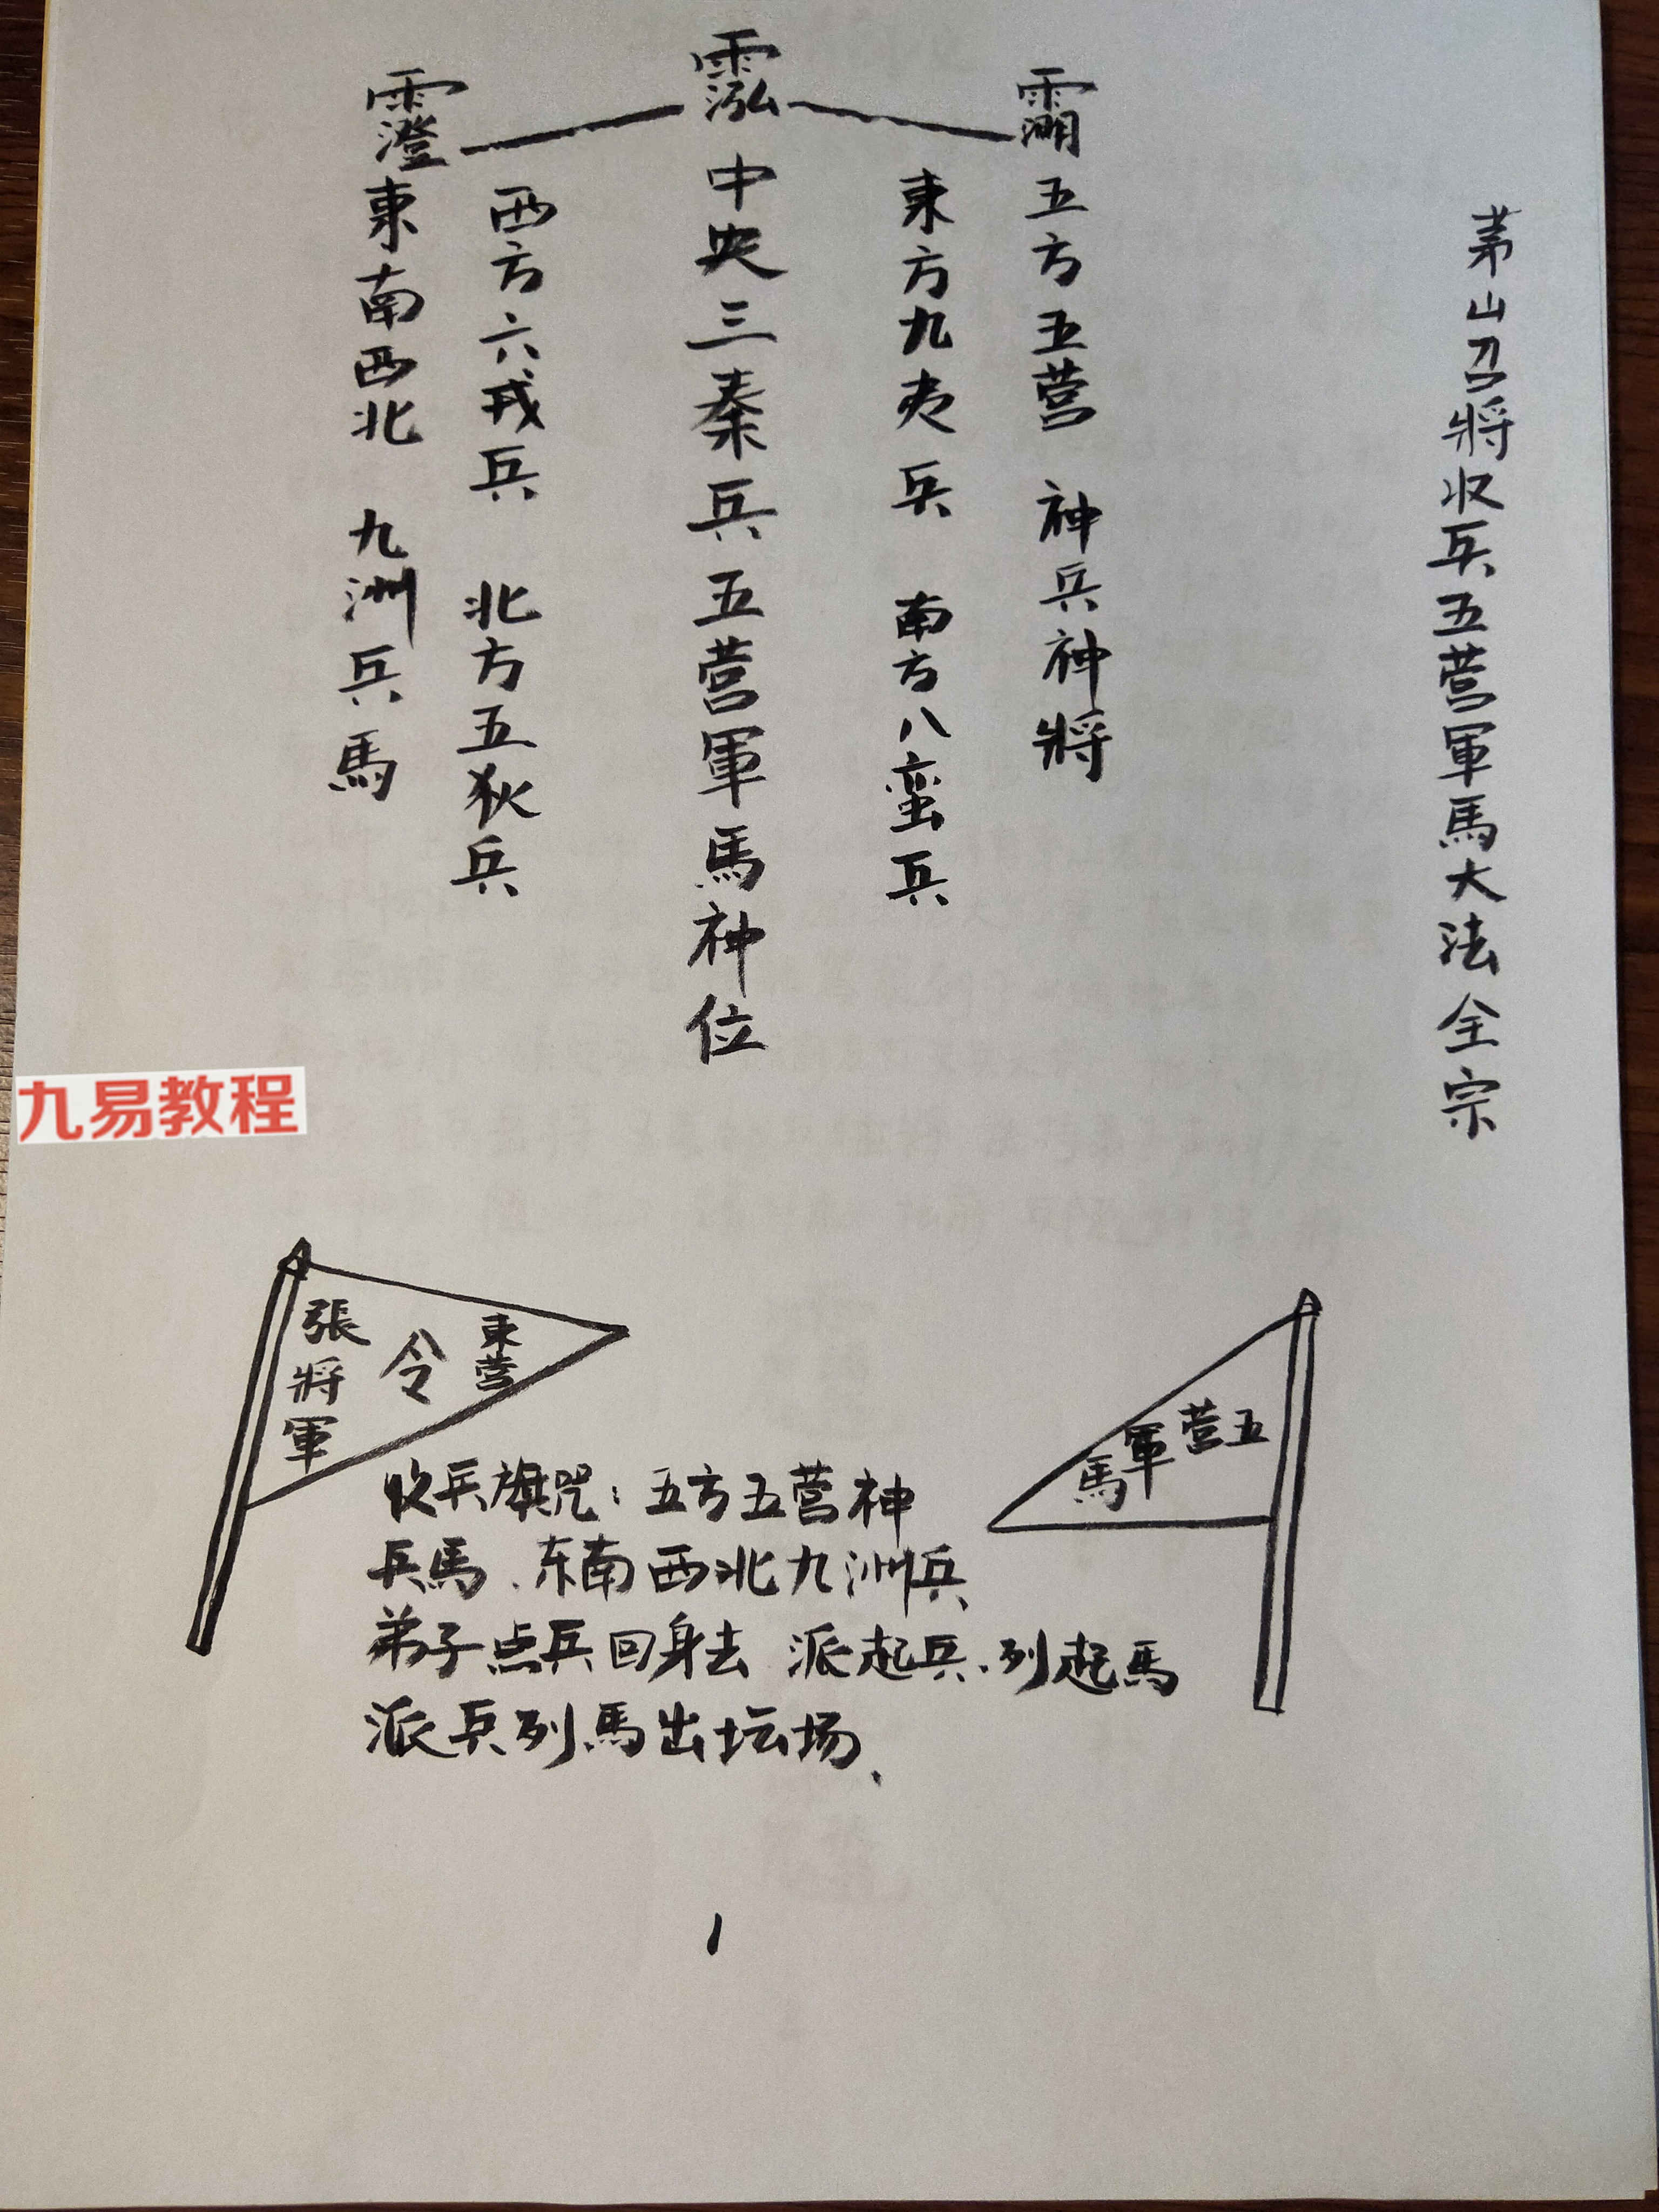 茅山召將收兵五营軍馬大法全宗
五方五营 神兵神將
東方九夷兵 南方八蛮兵
中央三秦兵五营軍馬神位
西方六戎兵 北方五狄兵
東南西北 九洲兵馬
九易教程
張將軍
令
東营
五营軍馬
收兵旗咒：五方五营神
兵馬、东南西北九洲兵
弟子点兵回身去 派起兵、列起馬
派兵列馬出坛场、
1